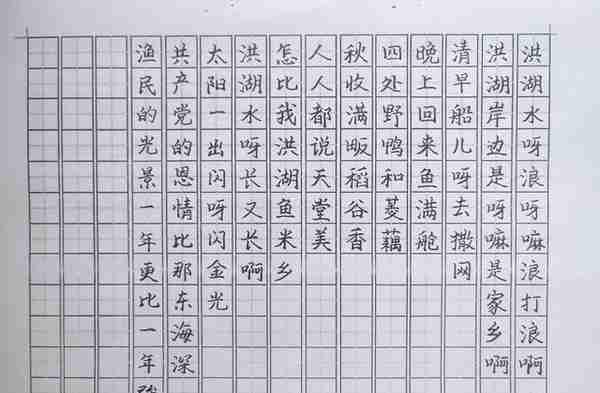 洪湖水呀浪呀嘛浪打浪啊
洪湖岸边是呀嘛是家乡啊
清早船儿呀去撒网
晚上回来鱼满舱
四处野鸭和菱藕
秋收满畈稻谷香
人人都说天堂美
怎比我洪湖鱼米乡
洪湖水呀长又长啊
太阳一出闪呀闪金光
共产党的恩情比那东海深
渔民的光景一年更比一年